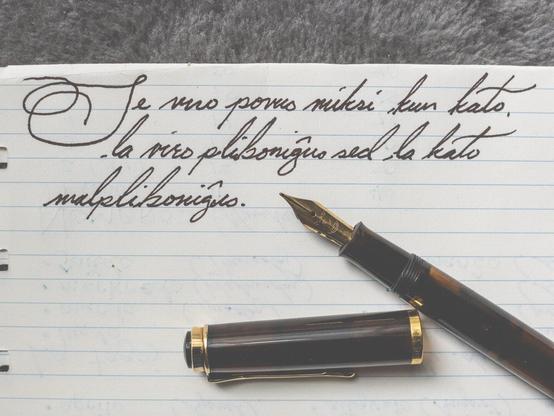 Se viro povus miksi kun kato,
la viro pliboniĝus sed la kato
malpliboniĝus.